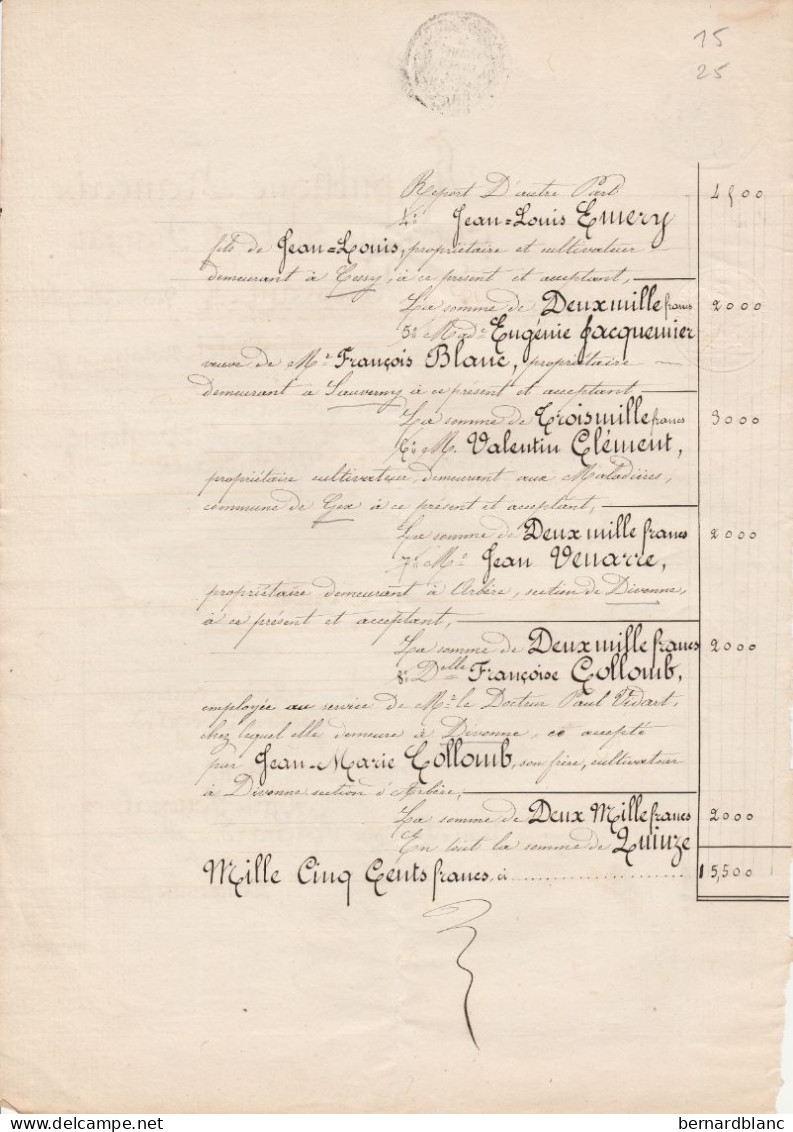 15
25
Report D'autre Part 4500
4º Jean-Louis Emery
fils de Jean-Louis, propriétaire et cultivateur
demeurant à Cessy, à ce présent et acceptant,
La somme de Deux mille francs 2000
5º Made Eugénie Jacquemier
veuve de Mr François Blanc, propriétaire
demeurant à Sauverny à ce présent et acceptant
La somme de Trois mille francs 3000
6º M. Valentin Clément,
propriétaire cultivateur, demeurant aux Maladières,
commune de Gex à ce présent et acceptant,
La somme de Deux mille francs 2000
7º Mr Jean Venarre,
propriétaire demeurant à Arbère, section de Divonne,
à ce présent et acceptant,
La somme de Deux mille francs 2000
8º Delle Françoise Collomb,
employée au service de Mr le Docteur Paul Vidart,
chez lequel elle demeure à Divonne, ce accepté
par Jean-Marie Collomb, son frère, cultivateur
à Divonne section d'Arbère,
La somme de Deux Mille francs 2000
En tout la somme de Quinze
Mille Cinq Cents francs, ci 15,500
bernardblanc